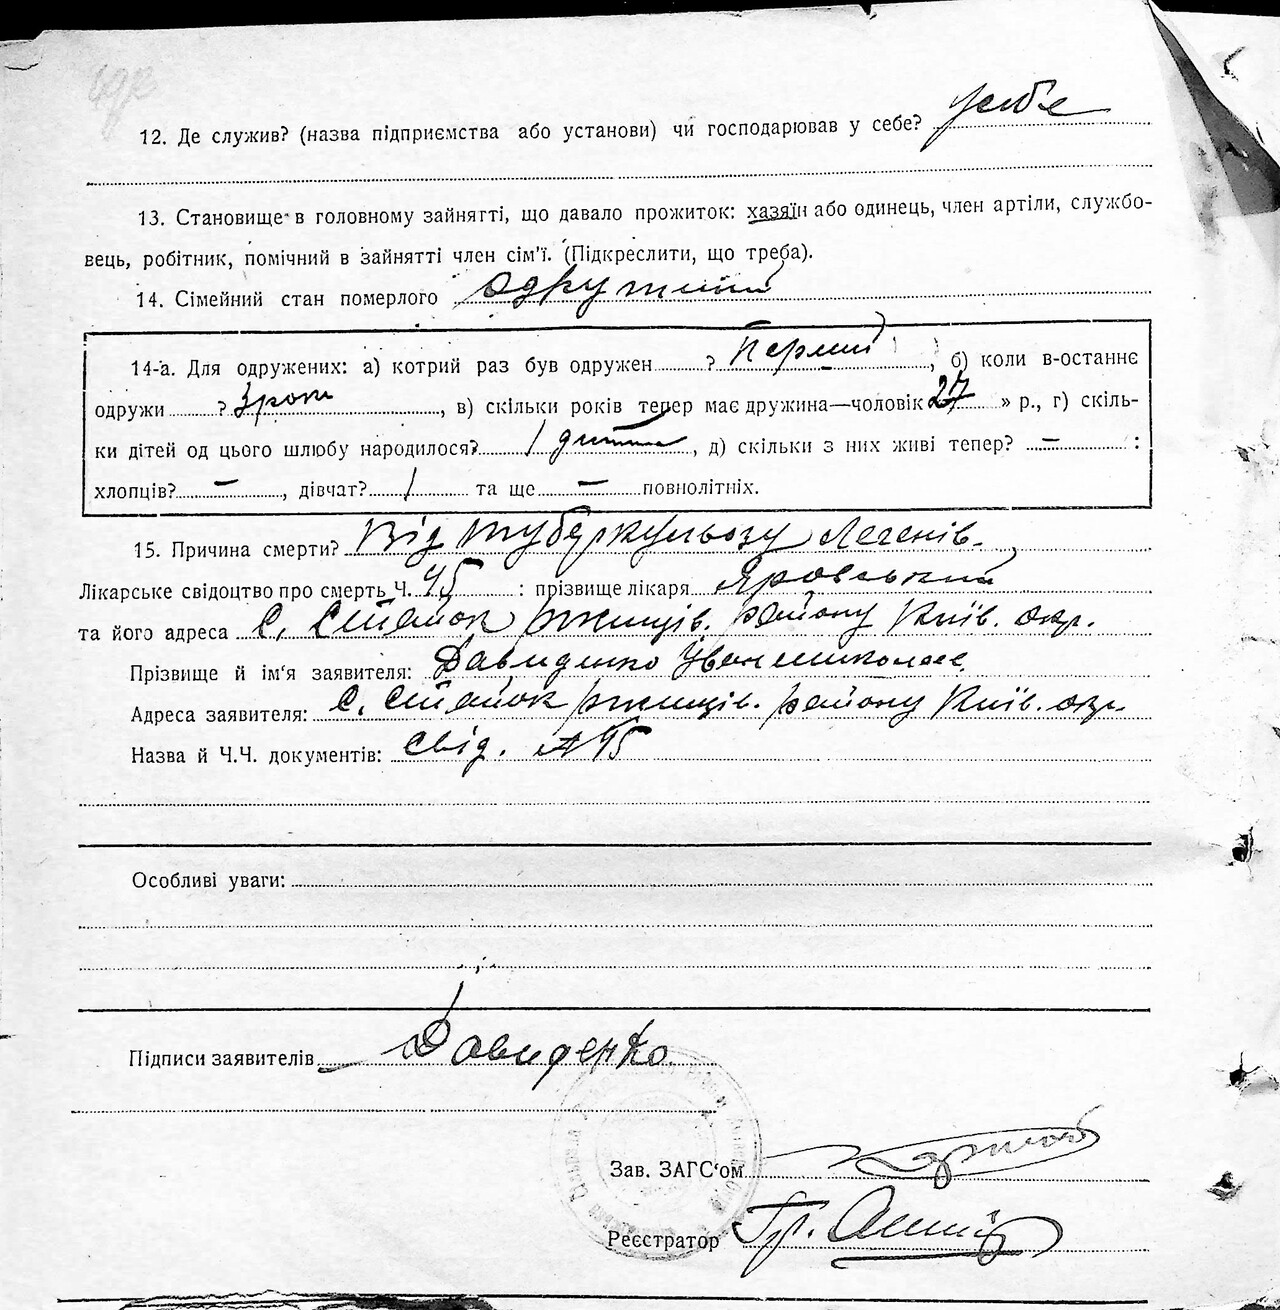 12. Де служив? (назва підприємства або установи) чи господарював у себе? у себе
13. Становище в головному зайнятті, що давало прожиток: хазяїн або одинець, член артіли, службо-
вець, робітник, помічний в зайнятті член сім'ї. (Підкреслити, що треба).
14. Сімейний стан померлого одружений
14-а. Для одружених: а) котрий раз був одружен ? Перший, б) коли в-останнє
одружи ? 3 роки, в) скільки років тепер має дружина—чоловік 27 » р., г) скіль-
ки дітей од цього шлюбу народилося? 1 дитина, д) скільки з них живі тепер? — :
хлопців? —, дівчат? 1 та ще — повнолітніх.
15. Причина смерти? Від туберкульозу Легенів.
Лікарське свідоцтво про смерть Ч. 45 : прізвище лікаря Яровський
та його адреса с. Стайок Ржищів. району Київ. окр.
Прізвище й ім'я заявителя: Давиденко
Адреса заявителя: с. Стайок Ржищів. району Київ. окр.
Назва й Ч.Ч. документів: свід. № 45
Особливі уваги:
Підписи заявителів Давиденко
Зав. ЗАГС'ом
Реєстратор